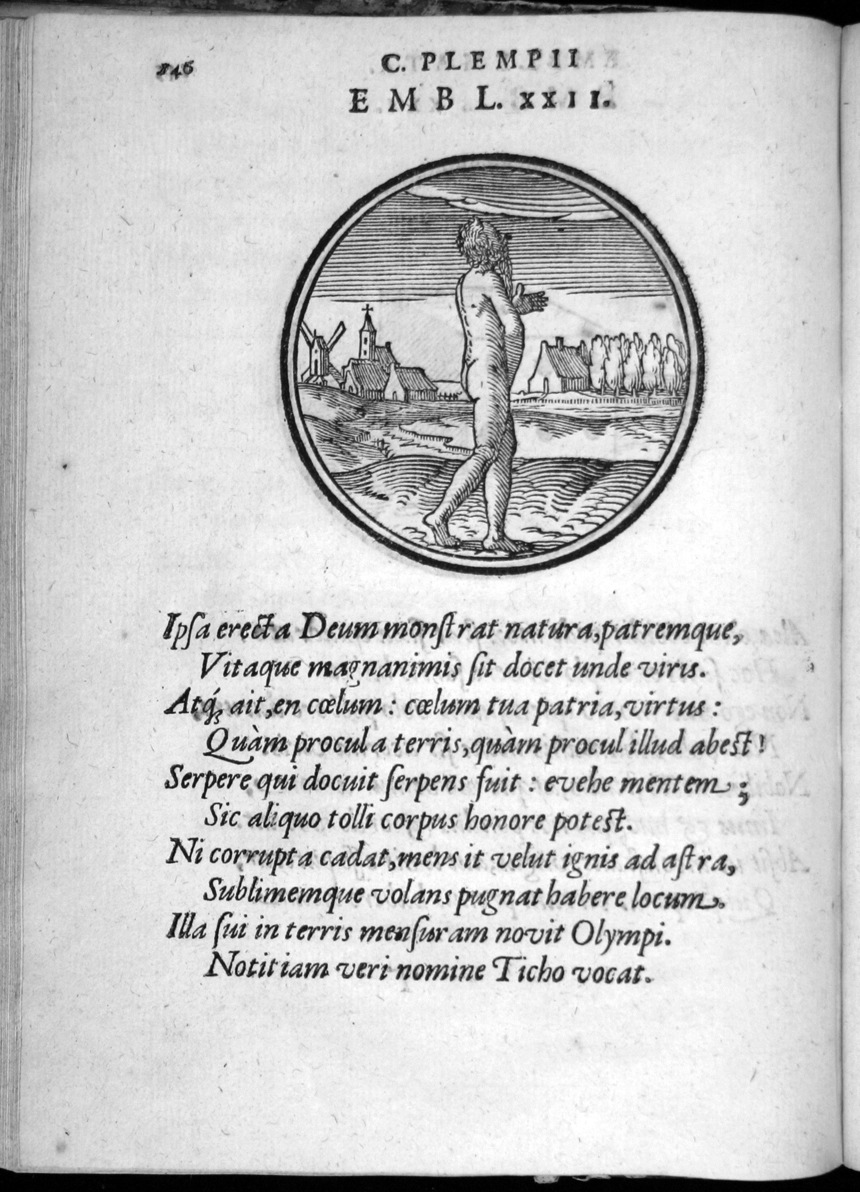 146
C. PLEMPII
EMBL. XXII.
Ipſa erecta Deum monſtrat natura, patremque,
Vitaque magnanimis ſit docet unde viris.
Atq́; ait, en cœlum : cœlum tua patria, virtus :
Quàm procul a terris, quàm procul illud abest!
Serpere qui docuit ſerpens fuit : evehe mentem ;
Sic aliquo tolli corpus honore potest.
Ni corrupta cadat, mens it velut ignis ad aſtra,
Sublimemque volans pugnat habere locum.
Illa ſui in terris menſuram novit Olympi.
Notitiam veri nomine Ticho vocat.